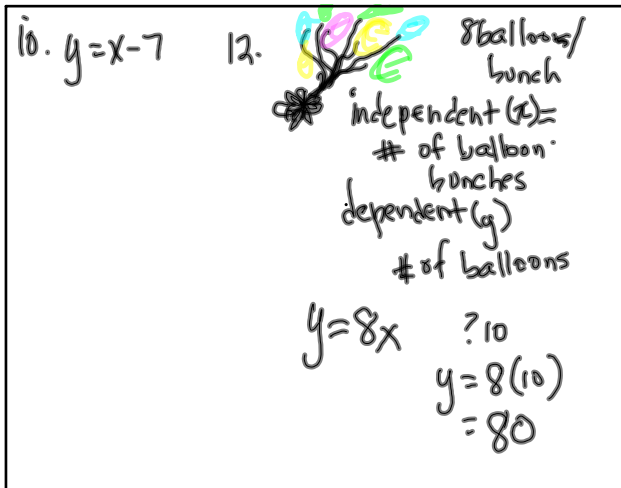 10. y = x - 7
12.
8 balloons/
bunch
independent (x) =
# of balloon
bunches
dependent (y)
# of balloons
y = 8x
? 10
y = 8(10)
= 80